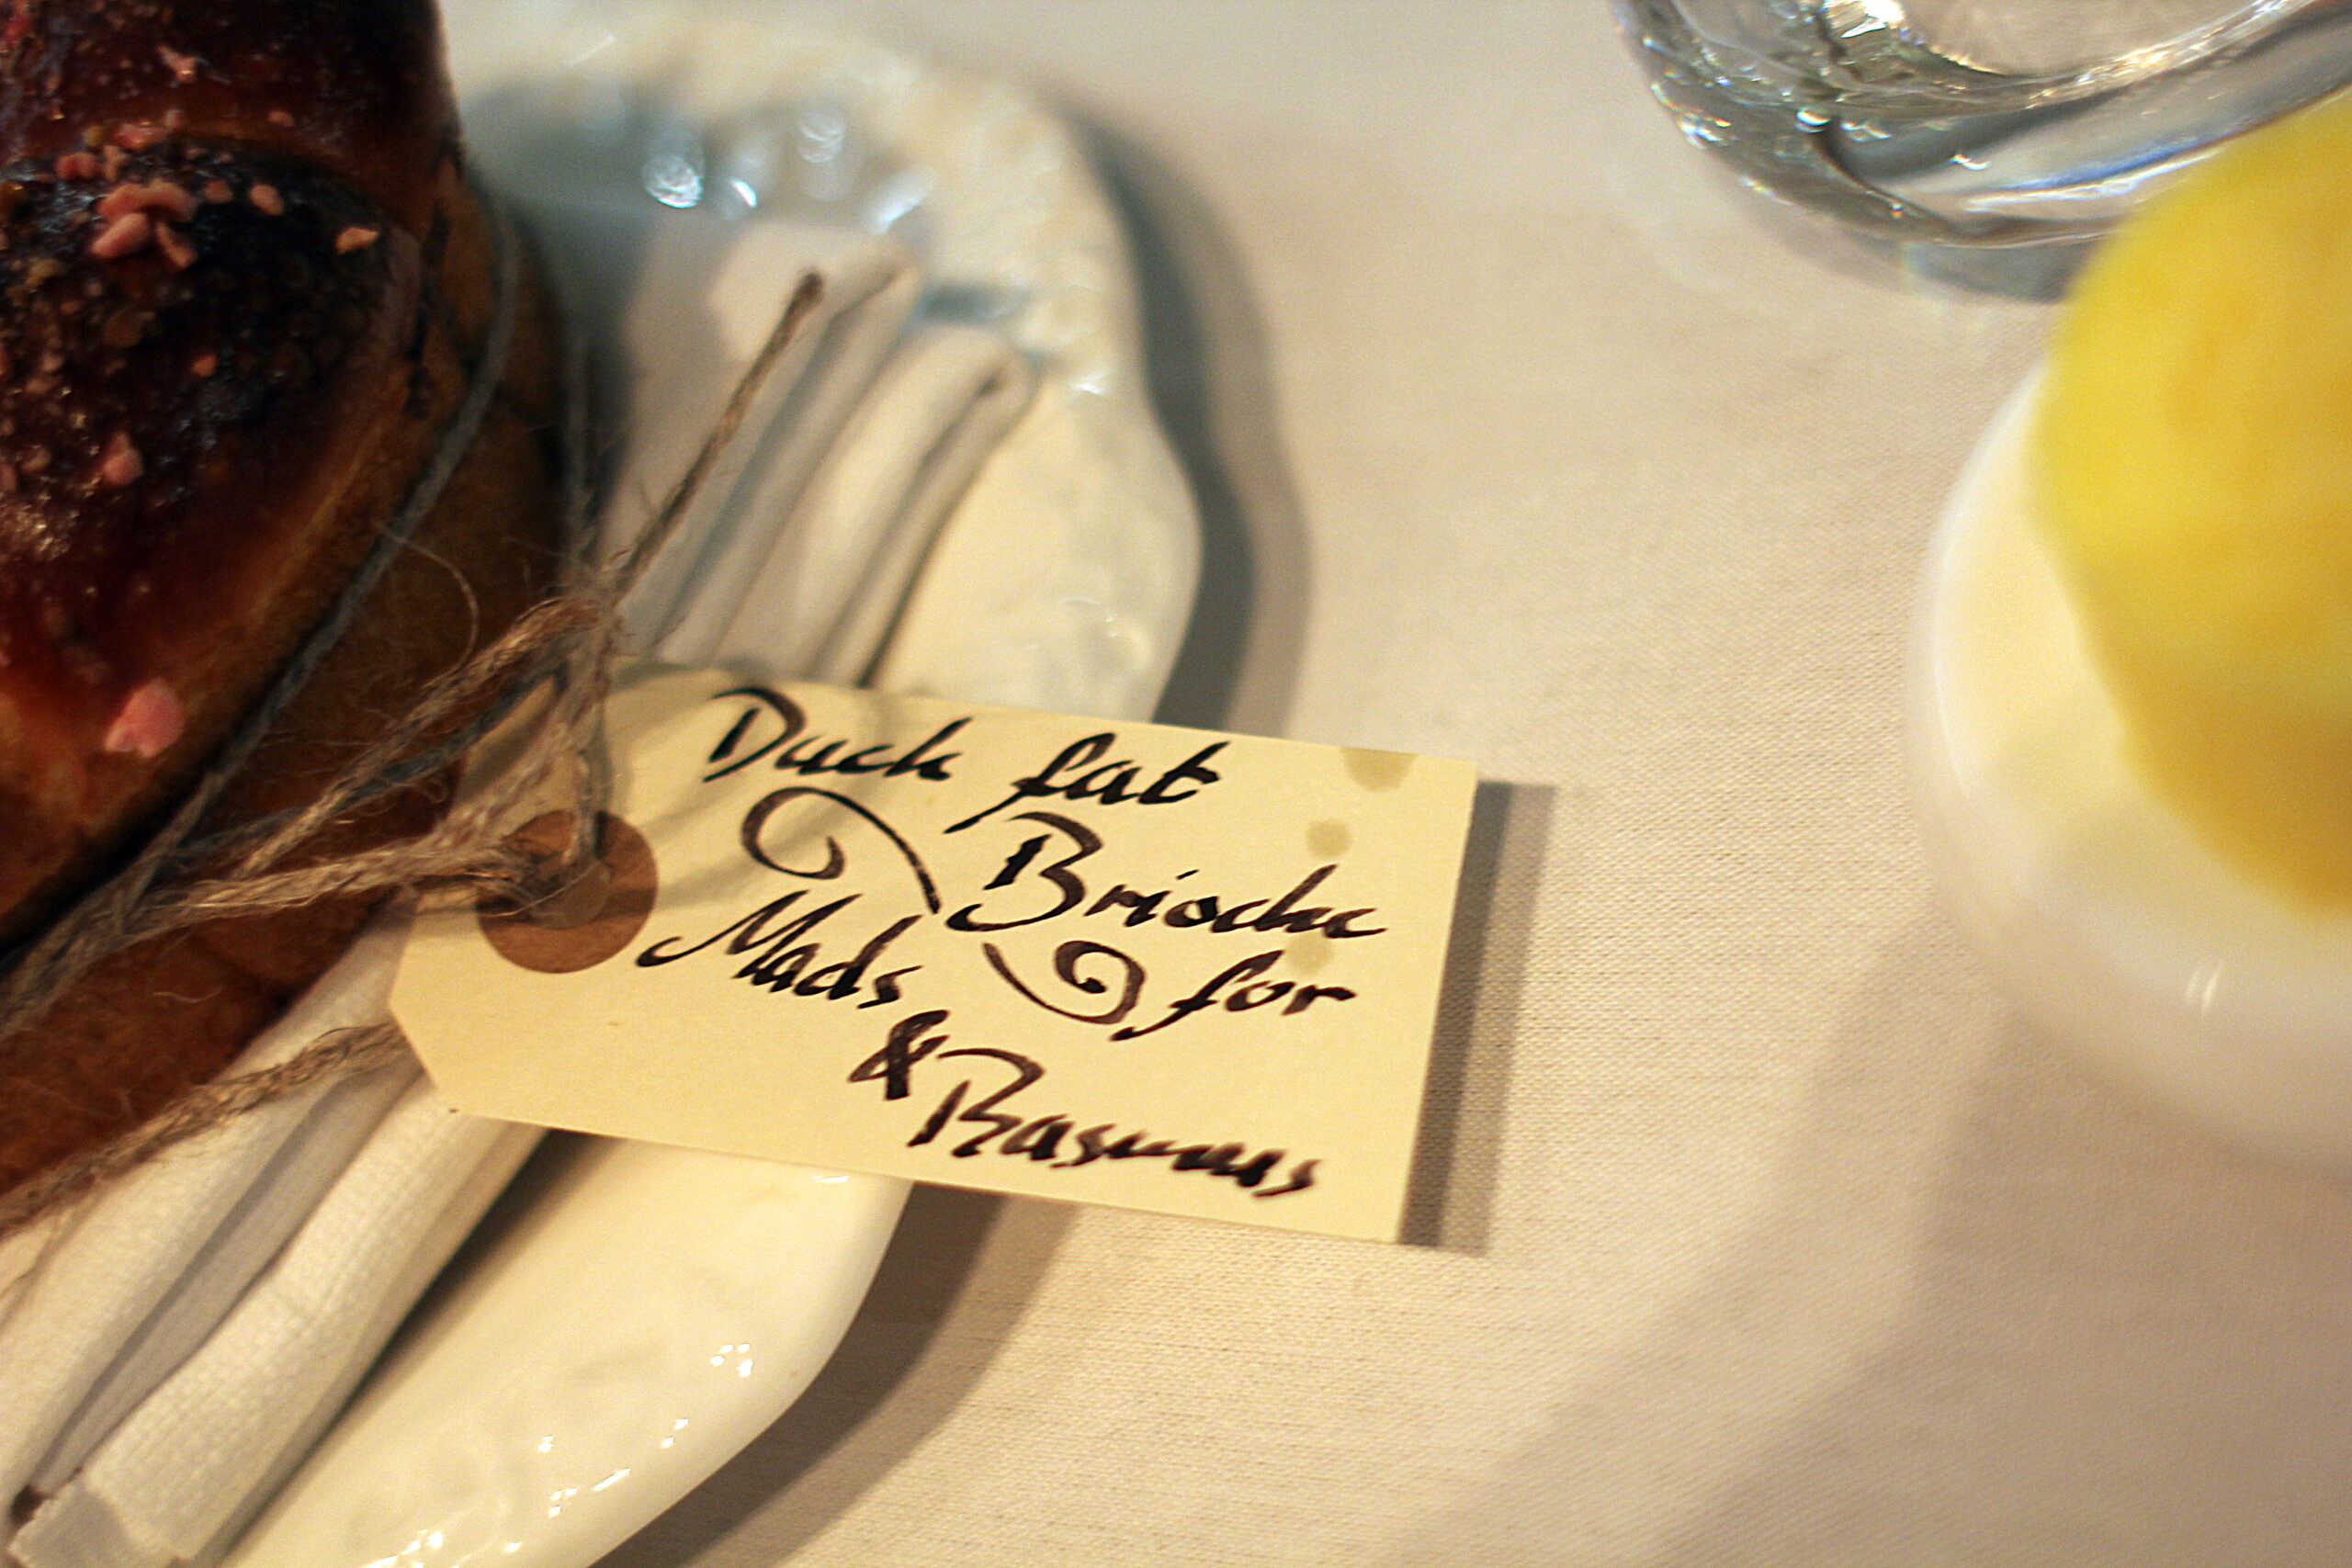 Duck fat
Brioche
for
Mads
& Rasmus